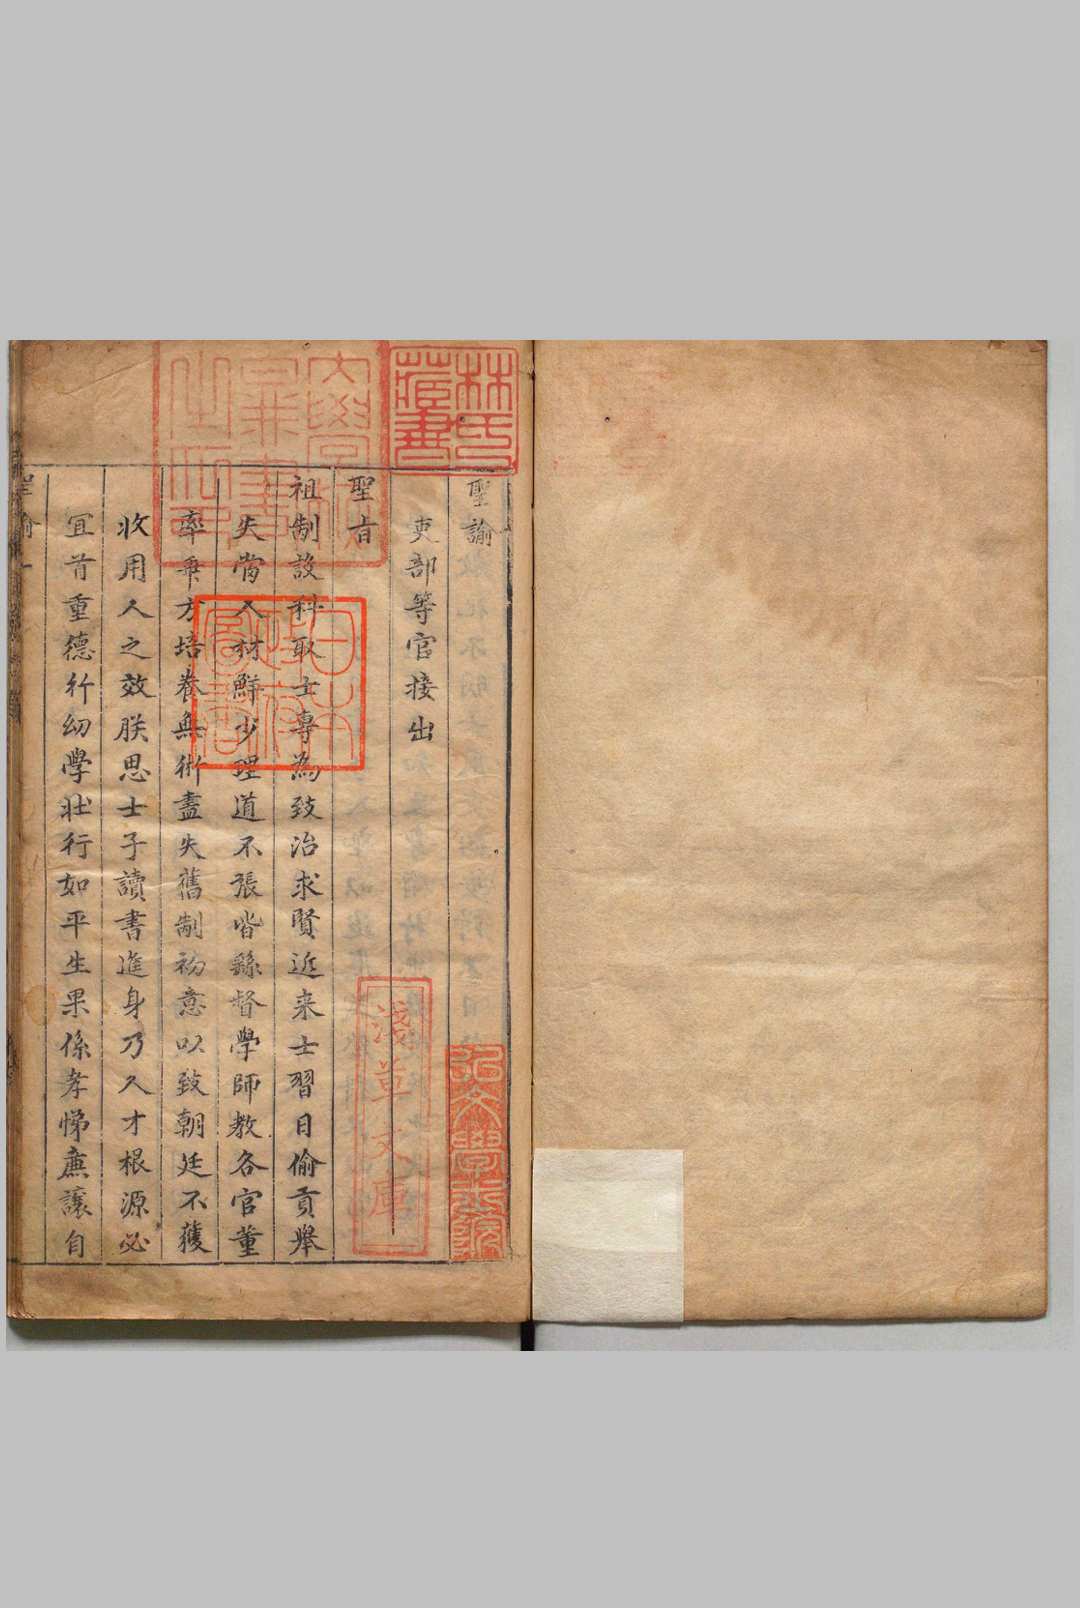 聖諭
吏部等官接出
聖旨
祖制設科取士專為致治求賢近来士習日偷貢舉
失當人材鮮少理道不張皆繇督學師教各官董
率乖方培養無術盡失舊制初意以致朝廷不獲
收用人之效朕思士子讀書進身乃人才根源必
宜首重德行幼學壯行如平生果係孝悌廉讓自
聖諭
一
林氏藏書
日本政府圖書
淺草文庫
弘文學士院